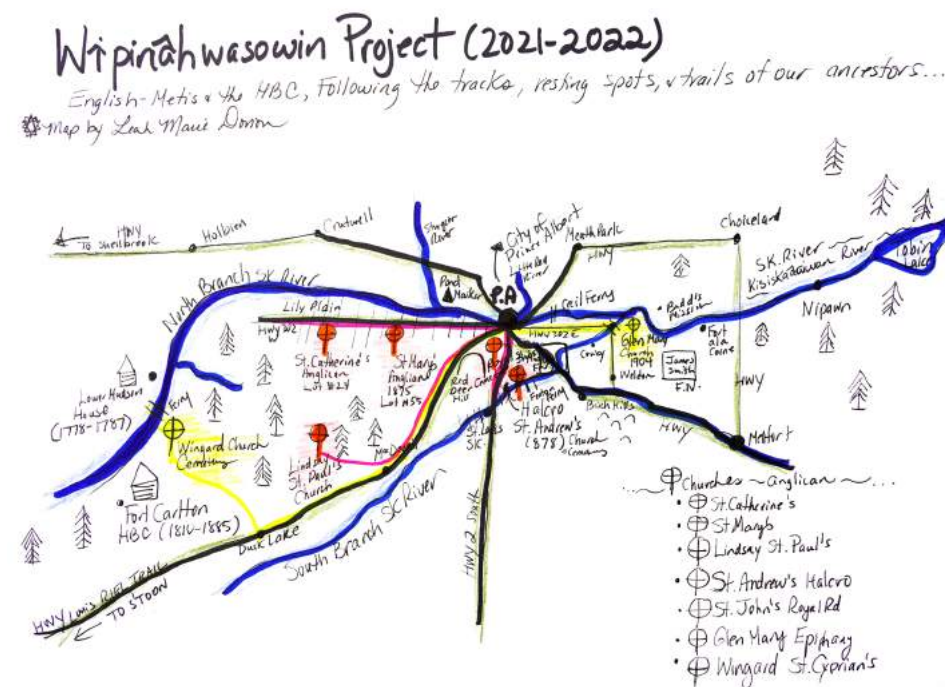 Wîpinâhwasowin Project (2021-2022)
English-Metis & the HBC, Following the tracks, resting spots, & trails of our ancestors...
Map by Leah Marie Dorion
HWY
TO Shellbrook
Holbien
Crutwell
River
City of
Prince Albert
Little Red
River
Meath Park
HWY
Choiceland
SK. River
Kisiskazawan River
Tobin
Lake
Nipawn
North Branch SK River
Pond
Marker
P.A
Cecil Ferry
Lily Plain
HWY 302
HWY 302 E
Fort
a la
Corne
Glen Mary
Church
1904
James
Smith
F.N.
Weldon
HWY
Birch Hills
HWY
Melfort
St. Catherine's
Anglican
Lot #24
St Marys
Anglican
1875
Lot #55
Red
Deer
Hill
Halcro
St. Andrew's
(1878) Church
Cemetery
St. Louis
SK.
Lower Hudson
House
(1778-1787)
Ferry
Wingard Church
Cemetery
Lindsay
St. Paul's
Church
MacDowall
Fort Carlton
HBC (1810-1885)
Duck Lake
South Branch SK River
HWY 2 South
HWY Louis RIEL TRAIL
TO STOON
Churches ~ anglican ~...
St. Catherine's
St Marys
Lindsay St. Paul's
St. Andrew's Halcro
St. John's Royal Rd
Glen Mary Epiphany
Wingard St. Cyprian's